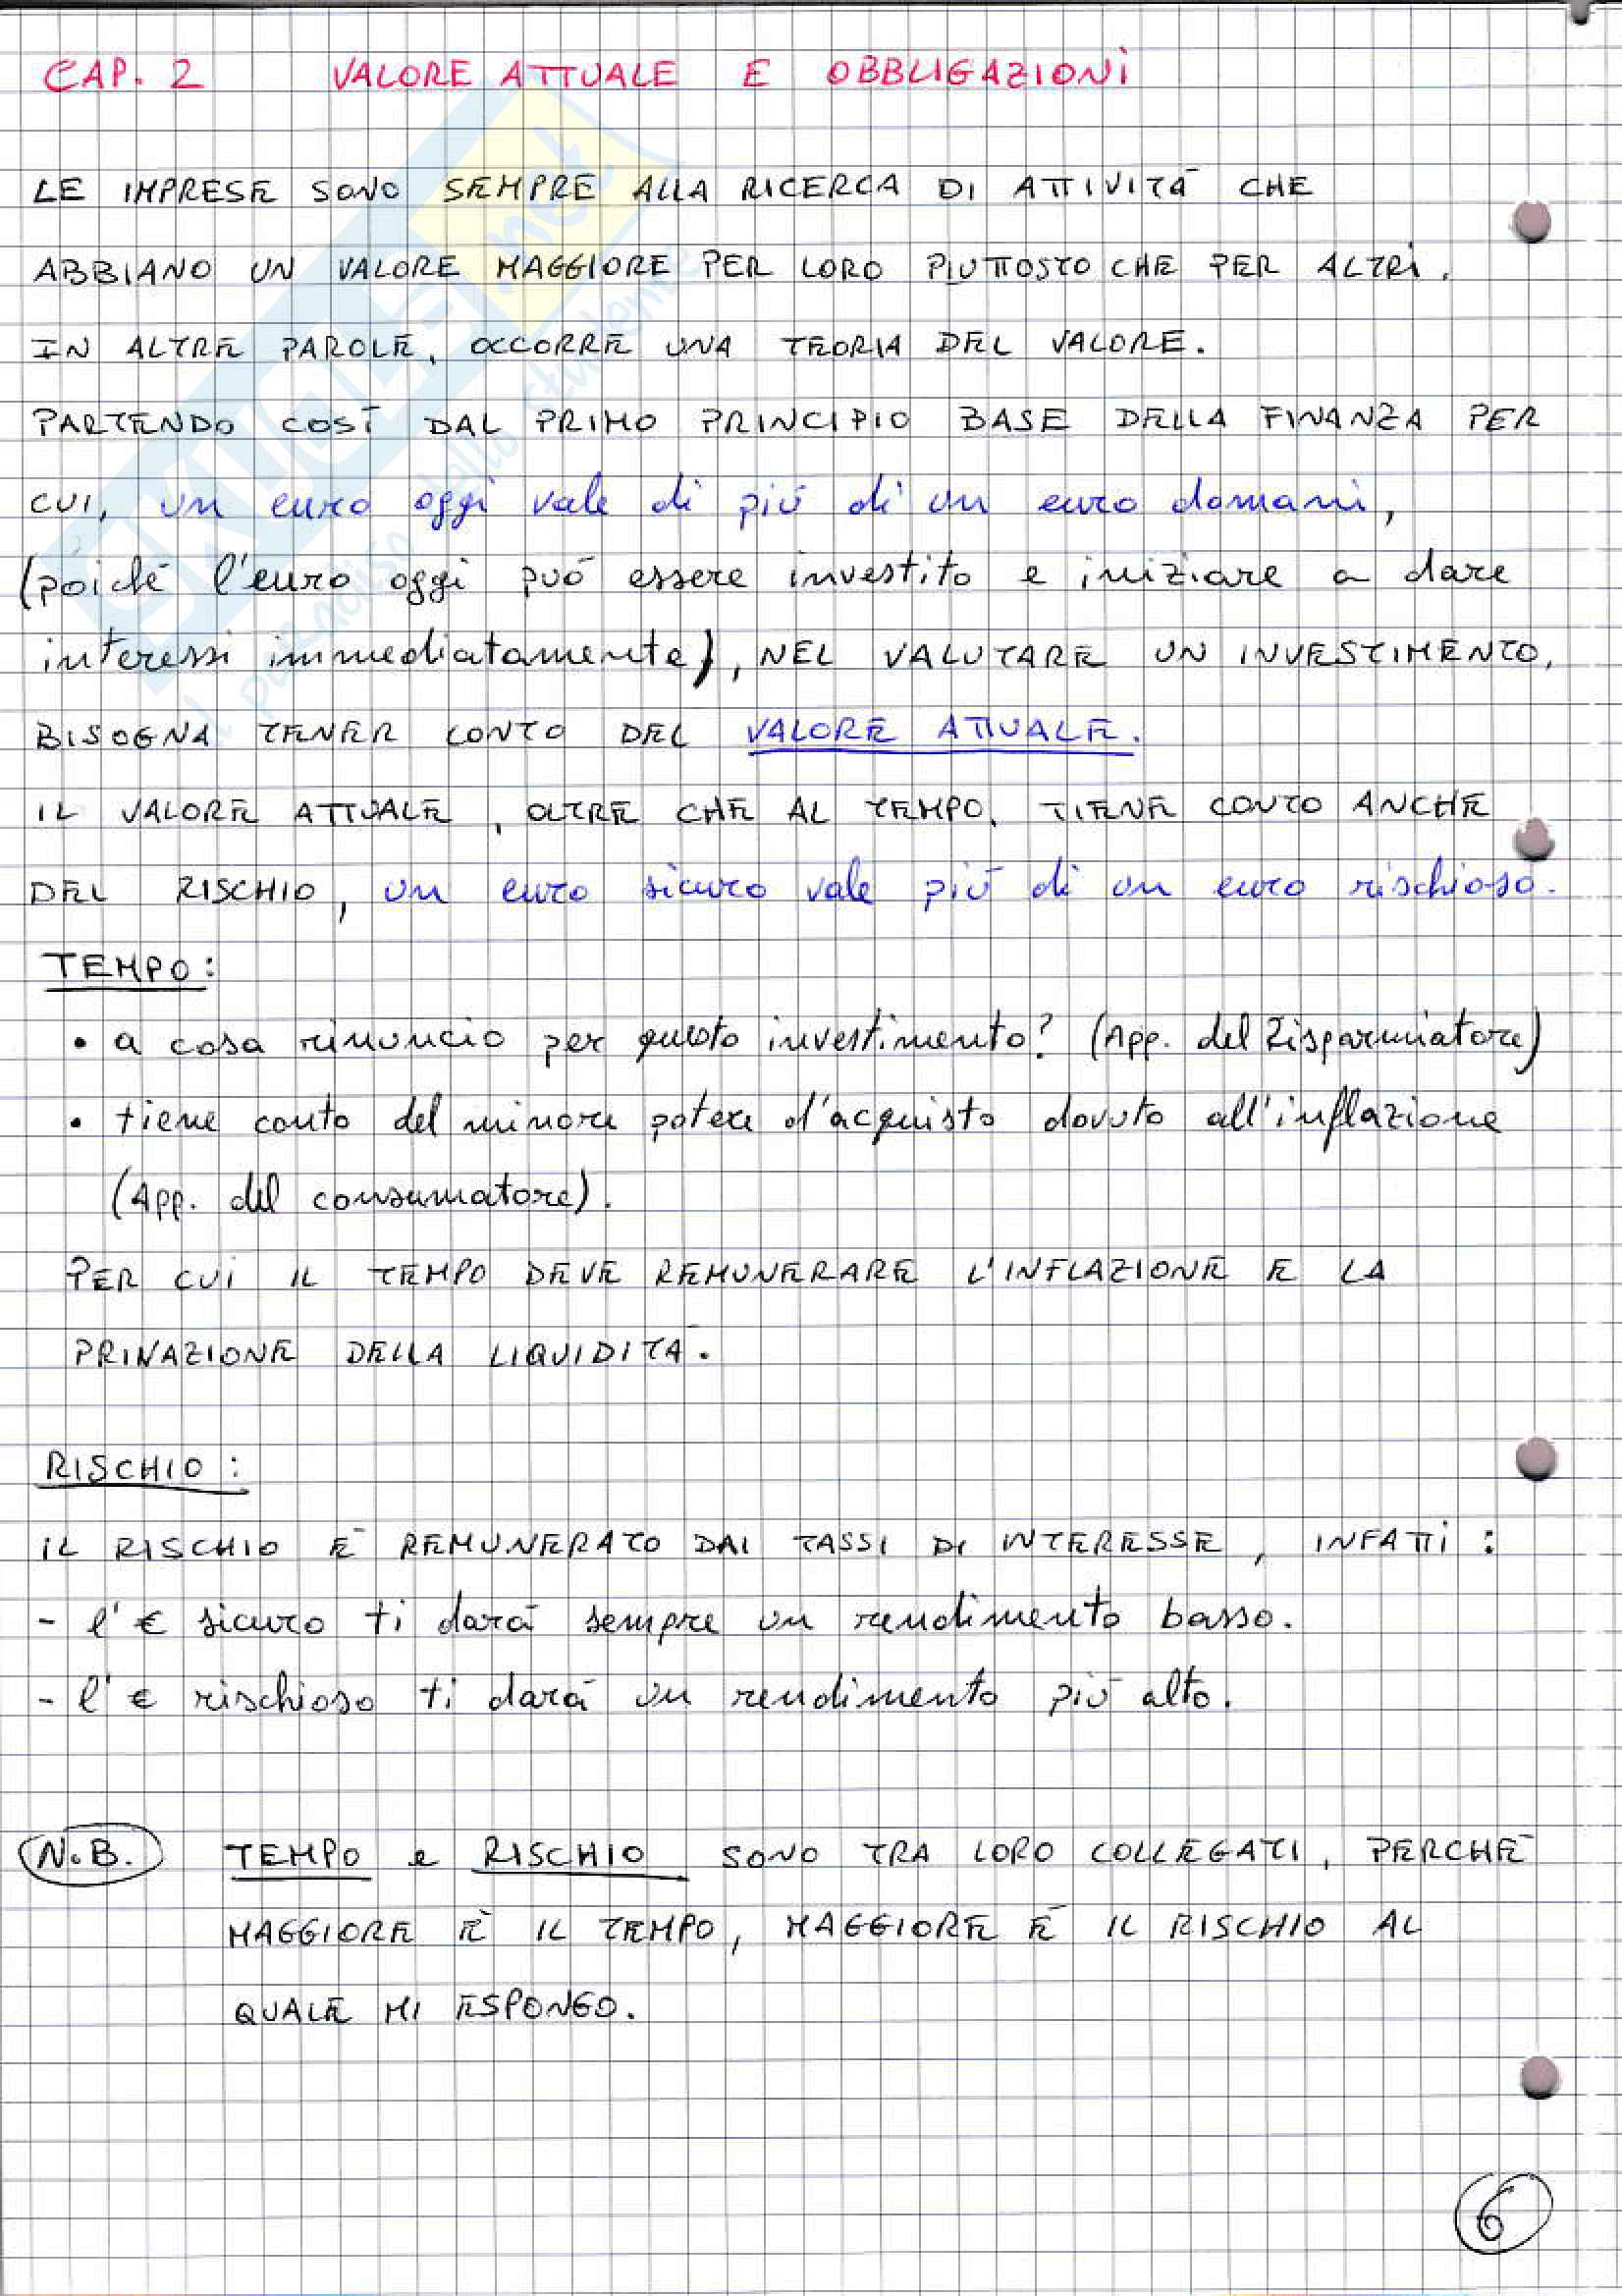 CAP. 2 VALORE ATTUALE E OBBLIGAZIONI
LE IMPRESE SONO SEMPRE ALLA RICERCA DI ATTIVITÀ CHE
ABBIANO UN VALORE MAGGIORE PER LORO PIUTTOSTO CHE PER ALTRI.
IN ALTRE PAROLE, OCCORRE UNA TEORIA DEL VALORE.
PARTENDO COSÌ DAL PRIMO PRINCIPIO BASE DELLA FINANZA PER
CUI, un euro oggi vale di più di un euro domani,
(poiché l'euro oggi può essere investito e iniziare a dare
interessi immediatamente), NEL VALUTARE UN INVESTIMENTO,
BISOGNA TENER CONTO DEL VALORE ATTUALE.
IL VALORE ATTUALE, OLTRE CHE AL TEMPO, TIENE CONTO ANCHE
DEL RISCHIO, un euro sicuro vale più di un euro rischioso.
TEMPO:
• a cosa rinuncio per questo investimento? (App. del Risparmiatore)
• tiene conto del minore potere d'acquisto dovuto all'inflazione
(App. del consumatore).
PER CUI IL TEMPO DEVE REMUNERARE L'INFLAZIONE E LA
PRIVAZIONE DELLA LIQUIDITÀ.
RISCHIO:
IL RISCHIO È REMUNERATO DAI TASSI DI INTERESSE, INFATTI:
- l'€ sicuro ti darà sempre un rendimento basso.
- l'€ rischioso ti darà un rendimento più alto.
N.B. TEMPO e RISCHIO SONO TRA LORO COLLEGATI, PERCHÉ
MAGGIORE È IL TEMPO, MAGGIORE È IL RISCHIO AL
QUALE MI ESPONGO.
6
SKUOLA.net
il paradiso dello studente